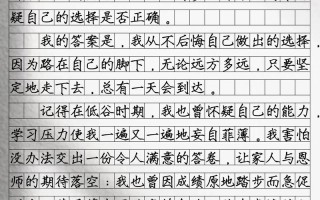 疑自己的选择是否正确。
我的答案是，我从不后悔自己做出的选择，
因为路在自己的脚下，无论远方多远，只要坚
定地走下去，总有一天会到达。
记得在低谷时期，我也曾怀疑自己的能力，
学习压力使我一遍又一遍地妄自菲薄。我害怕
没办法交出一份令人满意的答卷，让家人与恩
师的期待落空；我也曾因成绩原地踏步而急促